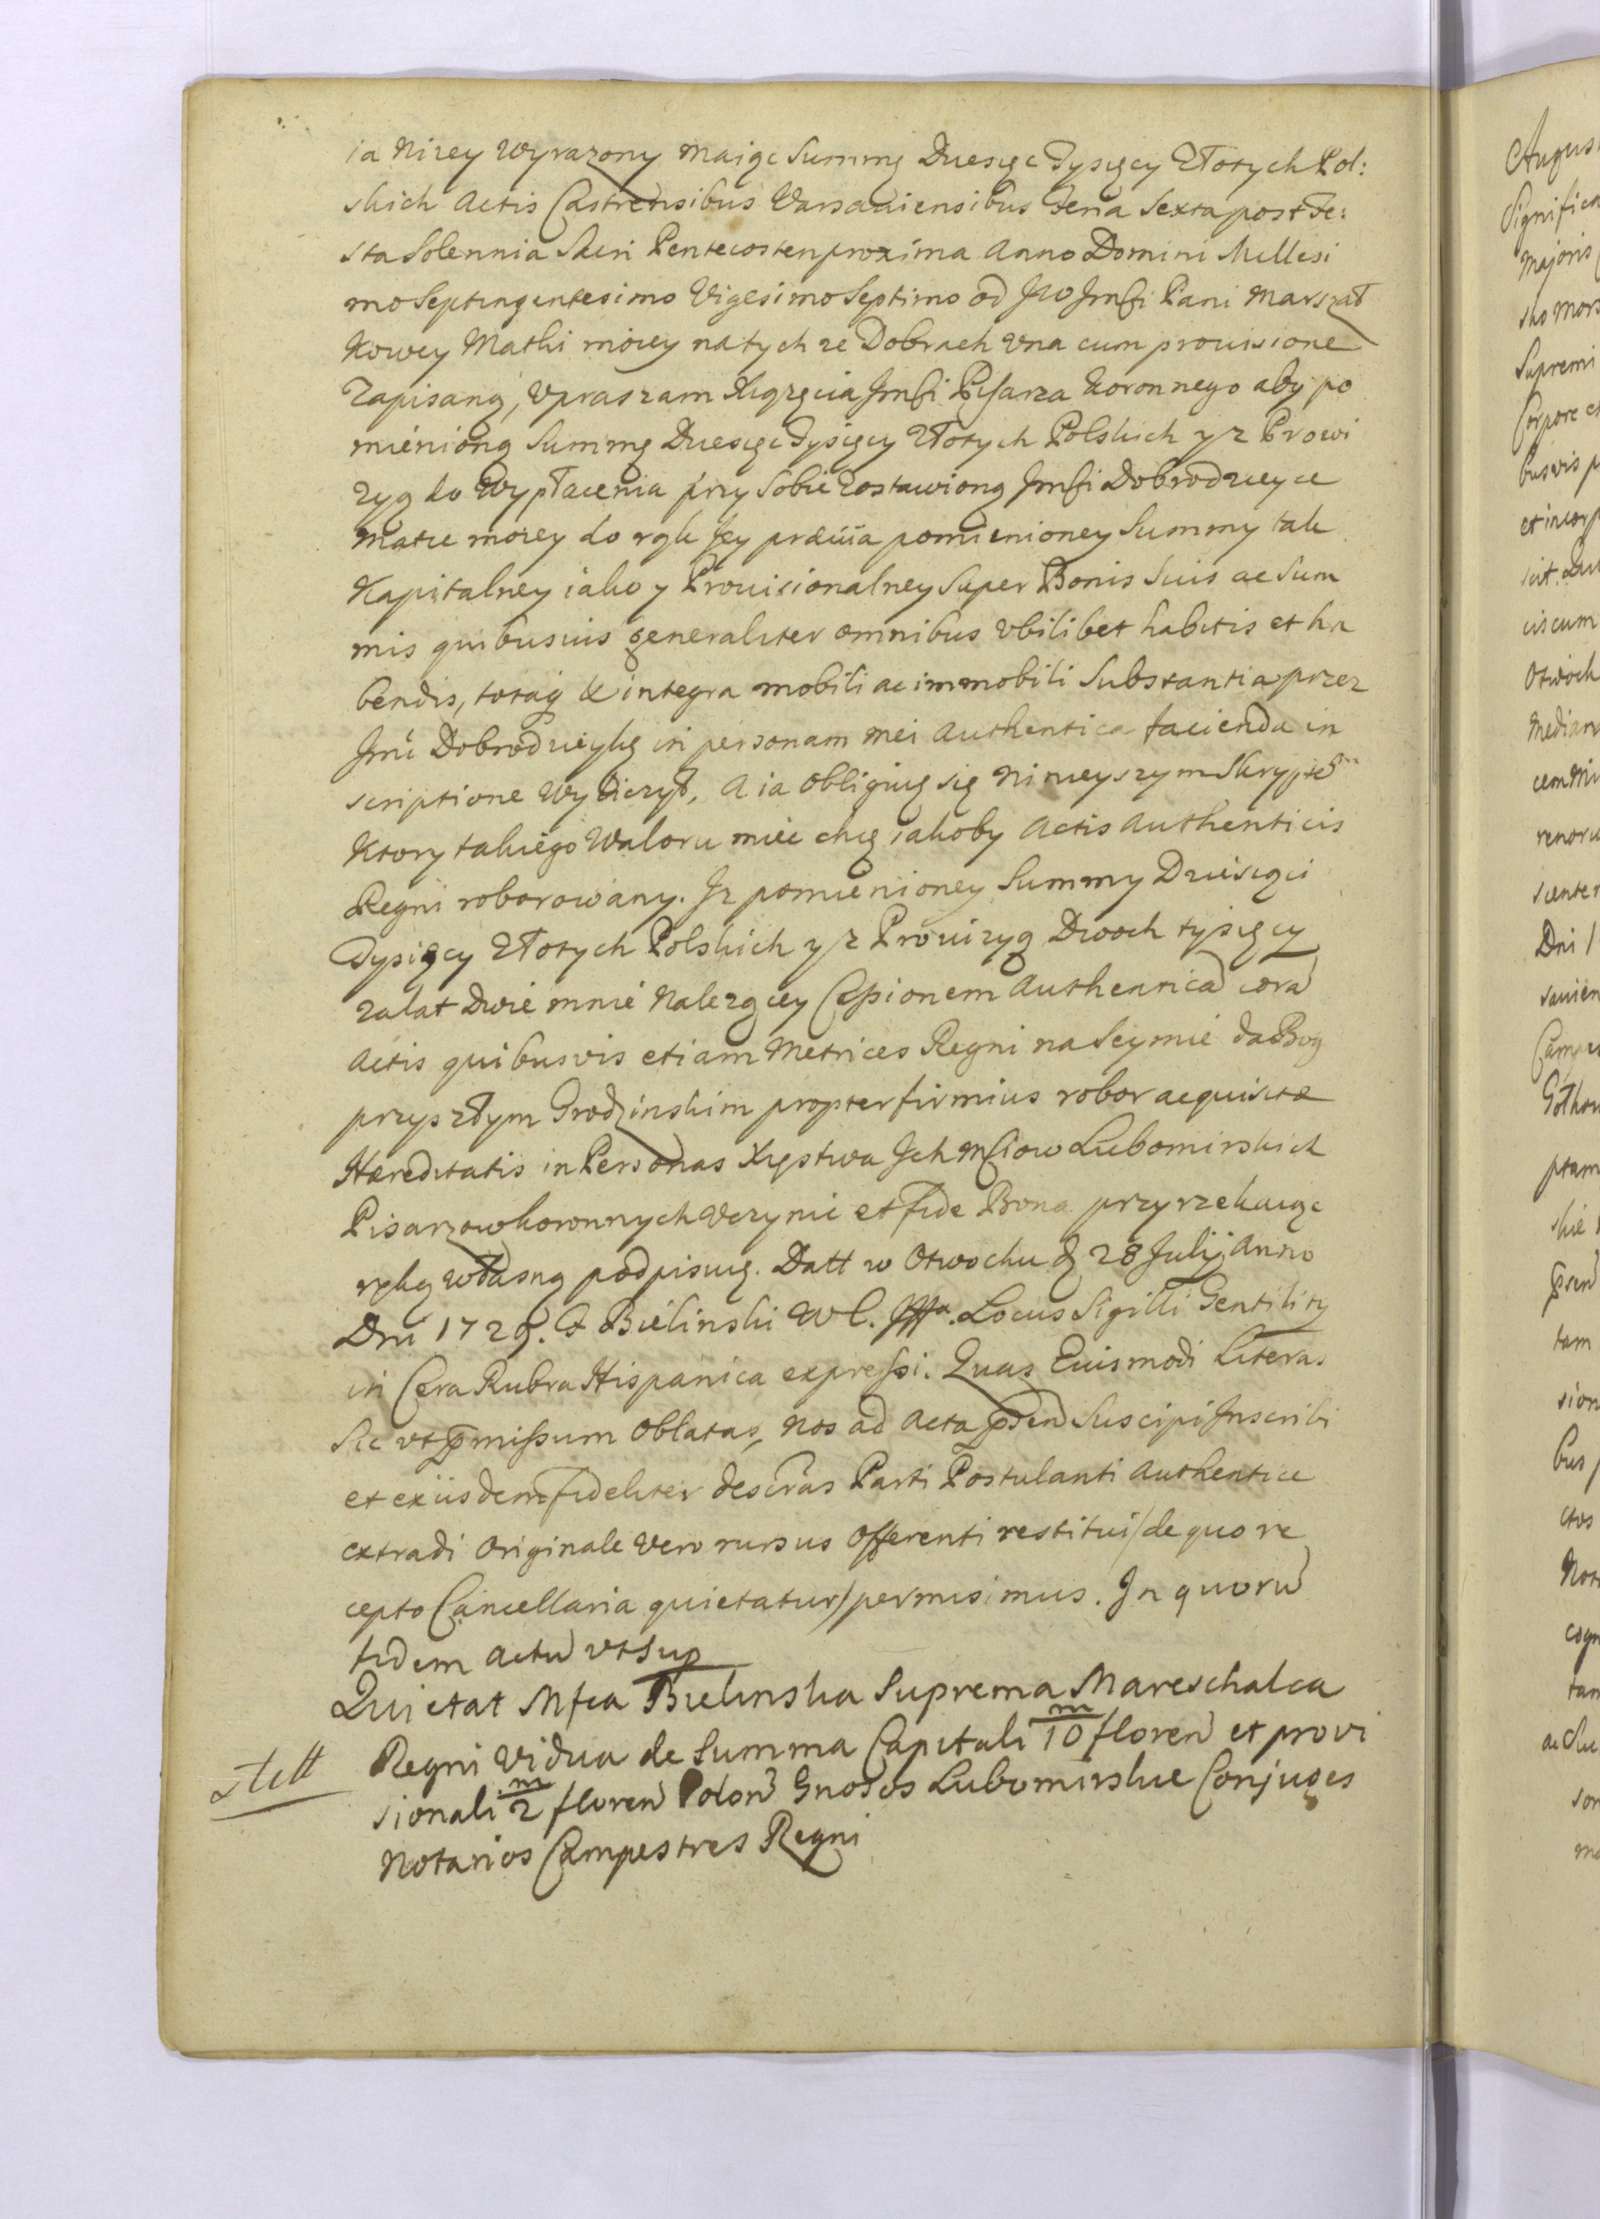 ia Nizey Wyrazony maiąc Summę Dziesięc Tysięcy Złotych Pol:
skich Actis Castrensibus Varsaviensibus Feria Sexta post Fe:
sta Solennia Sacri Pentecosten proxima Anno Domini Millesi
mo Septingentesimo Vigesimo Septimo od JWJmśći Pani Marszał
kowey Matki moiey na tych ze Dobrach Vna cum prouisione
Zapisaną, Vpraszam Xiązęcia Jmśći Pisarza Koronnego aby po
mienioną Summę Dziesięc Tysięcy Złotych Polskich y z Prowi
zyą do Wypłacenia przy Sobie Zostawioną Jmśći Dobrodzieyce
Matce moiey do rąk Jey prævia pomienioney Summy tak
Kapitalney iako y Prouisionalney Super Bonis Suis ac Sum
mis quibusuis generaliter omnibus Vbilibet habitis et ha
bendis, totaq & integra mobili ac immobili Substantia przez
Jmć Dobrodzieykę in personam mei Authentica facienda in
scriptione Wyliczył, A ia Obliguię się Ninieyszym Skryptem
Ktory takiego Waloru miec chcę iakoby Actis Authenticis
Regni roborowany. Jz pomienioney Summy Dziesiąci
Tysięcy Złotych Polskich y z Prouizyą Dwoch tysięcy
za lat Dwie mnie Nalezącey Cessionem Authenticā corā
Actis quibusvis etiam Metrices Regni na Seymie da Bog
przyszłym Grodzinskim propter firmius robor acquisitæ
Hæreditatis in Personas Xięstwa Jch Mśćiow Lubomirskich
Pisarzow koronnych Vczynić et fide Bona przyrzekaiąc
ręką własną podpisuię. Datt w Otwocku d 28 Julij Anno
Dni 1729. F Bielinski W C. Locus Sigilli Gentility
in Cera Rubra Hispanica expressi. Quas Eiusmodi Literas
Sic vt pmissum Oblatas, Nos ad Acta pnen Suscipi Jnscribi
et ex iisdem fideliter descras Parti Postulanti Authentice
extradi Originale Vero rursus Offerenti restitui /de quo re
cepto Cancellaria quietatur/ permisimus. Jn quorū
fidem Actū vt sup
Quietat Mfca Bielinska Suprema Mareschalca
stett Regni Vidua de Summa Capitali 10 m floren et provi
sionali 2 m floren Polon Gnosos Lubomirskie Conjuges
Notarios Campestres Regni